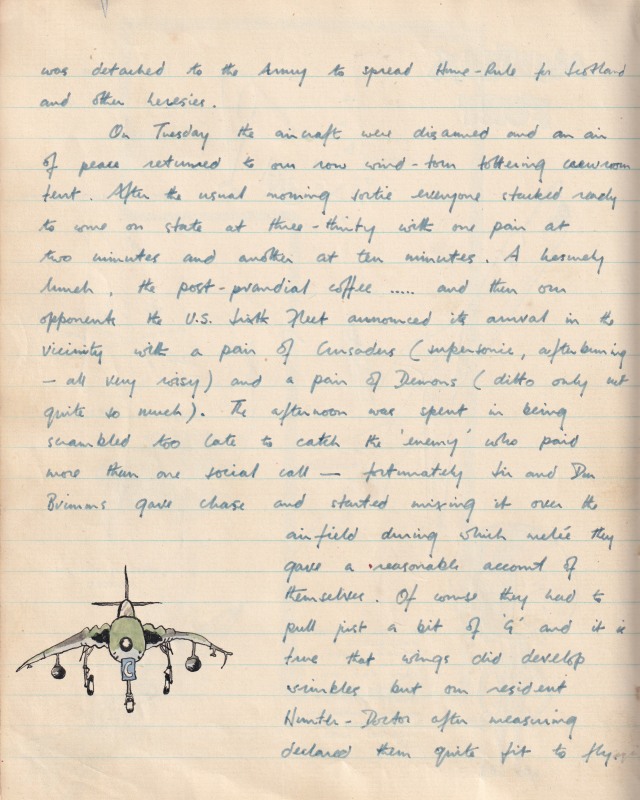 was detached to the Army to spread Home-Rule for Scotland
and other heresies.
On Tuesday the aircraft were disarmed and an air
of peace returned to our now wind-torn tottering crewroom
tent. After the usual morning sortie everyone stacked ready
to come on state at three-thirty with one pair at
two minutes and another at ten minutes. A leisurely
lunch, the post-prandial coffee ..... and then our
opponents the U.S. Sixth Fleet announced its arrival in the
vicinity with a pair of Crusaders (supersonic, afterburning
- all very noisy) and a pair of Demons (ditto only not
quite so much). The afternoon was spent in being
scrambled too late to catch the 'enemy' who paid
more than one social call - fortunately Sir and Don
Brimms gave chase and started mixing it over the
airfield during which melée they
gave a reasonable account of
themselves. Of course they had to
pull just a bit of 'G' and it is
true that wings did develop
wrinkles but our resident
Hunter-Doctor after measuring
declared them quite fit to fly
C